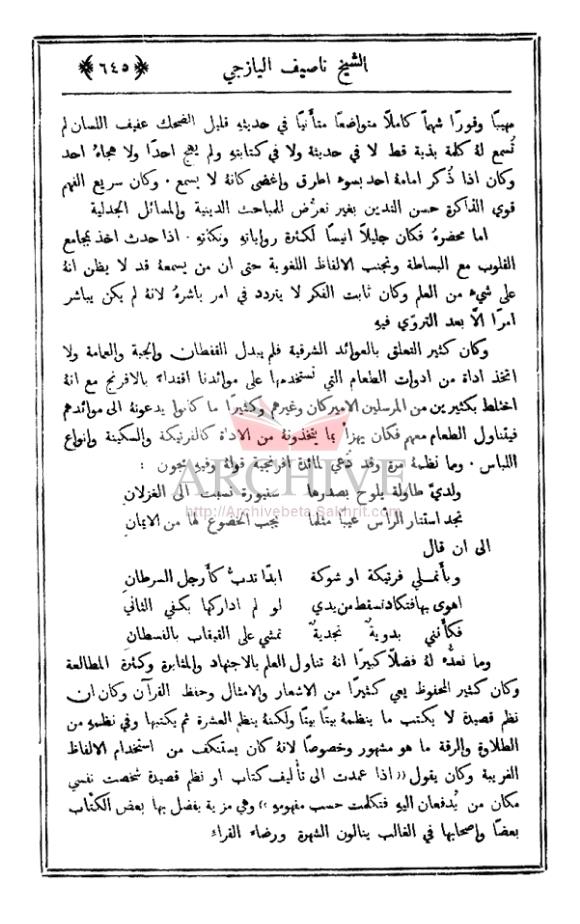 الشيخ ناصيف اليازجي
﴿٦٤٥﴾
مهيبًا وقورًا شهمًا كاملًا متواضعًا متأنيًا في حديثهِ قليل الضحك عفيف اللسان لم
تُسمع لهُ كلمة بذية قط لا في حديثه ولا في كتابتهِ ولم يهج احدًا ولا هجاهُ احد
وكان اذا ذُكر امامهُ احد بسوء اطرق واغضى كانهُ لا يسمع ٠ وكان سريع الفهم
قوي الذاكرة حسن التدين بغير تعرُّض للمباحث الدينية والمسائل الجدلية
اما محضرهُ فكان جليلًا انيسًا لكثرة رواياتهِ ونكاتهِ ٠ اذا حدث اخذ بمجامع
القلوب مع البساطة وتجنب الالفاظ اللغوية حتى ان من يسمعهُ قد لا يظن انهُ
على شيء من العلم وكان ثابت الفكر لا يتردد في امر باشرهُ لانهُ لم يكن يباشر
امرًا الَّا بعد التروّي فيهِ
وكان كثير التعلق بالعوائد الشرقية فلم يبدل القفطان والجبة والعمامة ولا
اتخذ اداة من ادوات الطعام التي نستخدمها على موائدنا اقتداءً بالافرنج مع انهُ
اختلط بكثيرين من المرسلين الاميركان وغيرهم وكثيرًا ما كانوا يدعونهُ الى موائدهم
فيتناول الطعام معهم فكان يهزأ بما يتخذونهُ من الاداة كالفرتيكة والسكينة وانواع
اللباس ٠ ومما نظمهُ مرة وقد دُعي لمائدة افرنجية قولهُ وفيهِ مجون :
ولديَّ طاولة يلوح بصدرها سنيورة نسبت الى الغزلان
نجد استتار الرأس عيبًا مثلما يجب الخضوع لها من الايمان
الى ان قال
وبأَنملي فرتيكة او شوكة ابدًا تدبُّ كأَرجل السرطان
اهوى بها فتكاد تسقط من يدي لو لم اداركها بكفي الثاني
فكأَنني بدويةٌ نجديةٌ تمشي على القبقاب بالفسطان
ومما نعدُّه لهُ فضلًا كبيرًا انهُ تناول العلم بالاجتهاد والمثابرة وكثرة المطالعة
وكان كثير المحفوظ يعي كثيرًا من الاشعار والامثال وحفظ القرآن وكان ان
نظم قصيدة لا يكتب ما ينظمهُ بيتًا بيتًا ولكنهُ ينظم العشرة ثم يكتبها وفي نظمهِ من
الطلاوة والرقة ما هو مشهور وخصوصًا لانهُ كان يستنكف من استخدام الالفاظ
الغريبة وكان يقول « اذا عمدت الى تأليف كتاب او نظم قصيدة شخصت نفسي
مكان من يُدفعان اليهِ فتكلمت حسب مفهومهِ » وهي مزية يفضل بها بعض الكتّاب
بعضًا واصحابها في الغالب ينالون الشهرة ورضاء القراء
ARCHIVE
http://Archivebeta.Sakhrit.com